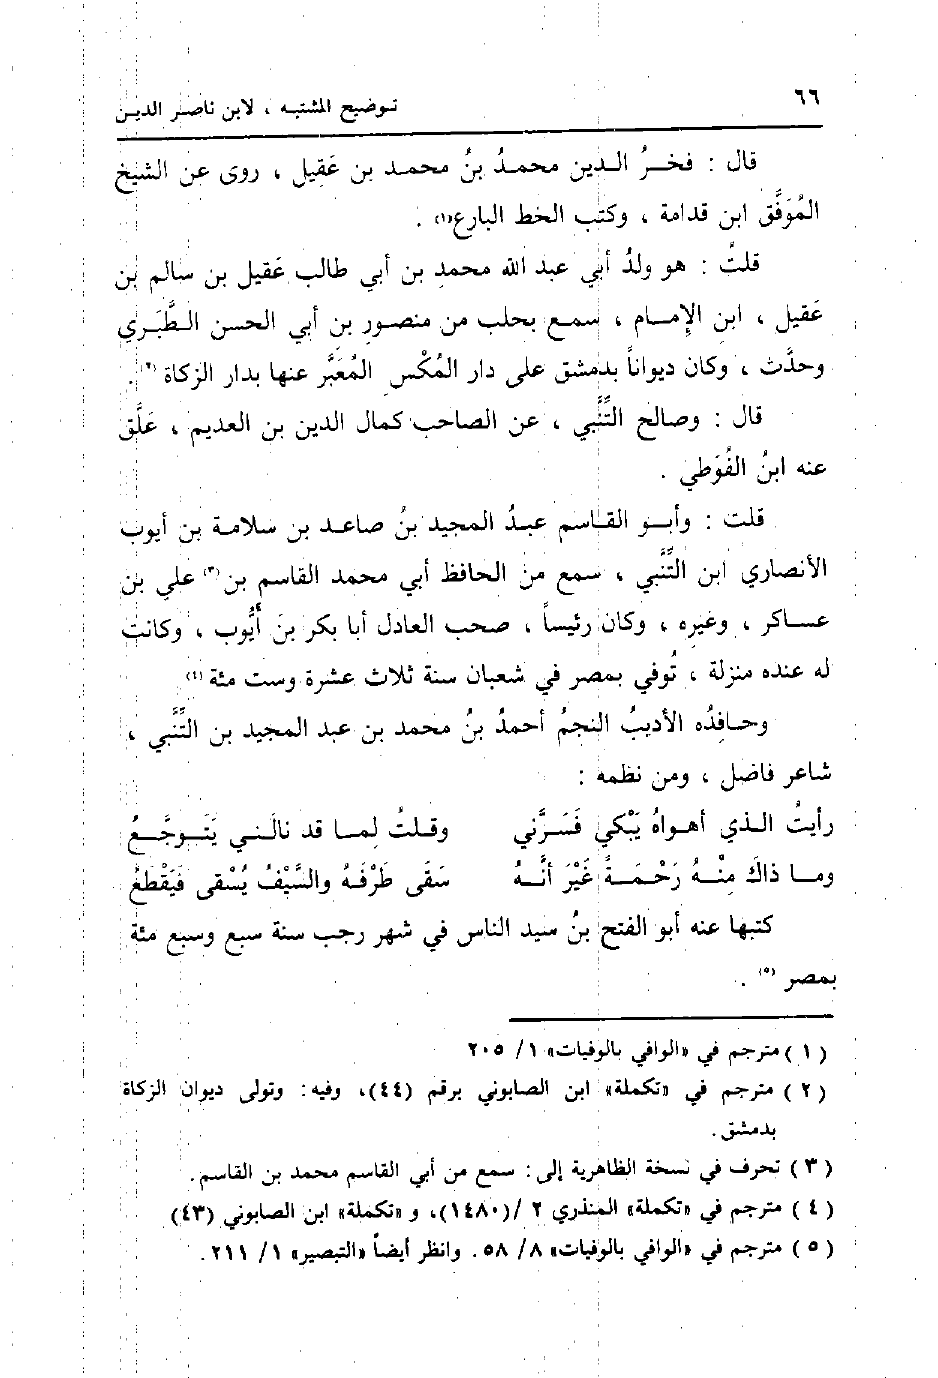 ٦٦
توضيح المشتبه ، لابن ناصر الدين
قال : فخرُ الدين محمدُ بنُ محمد بن عَقيل ، روى عن الشيخ
المُوَفَّق ابن قدامة ، وكتب الخط البارع(١) .
قلتُ : هو ولدُ أبي عبد الله محمدِ بن أبي طالب عَقيل بن سالم بن
عَقيل ، ابن الإمام ، سمع بحلب من منصورِ بن أبي الحسن الطَّبَري
وحدَّث ، وكان ديواناً بدمشق على دار المُكْس المُعَبَّر عنها بدار الزكاة(٢) .
قال : وصالح التِّنَّبي ، عن الصاحب كمال الدين بن العديم ، عَلَّق
عنه ابنُ الفُوَطي .
قلت : وأبو القاسم عبدُ المجيد بنُ صاعد بن سلامة بن أيوب
الأنصاري ابن التِّنَّبي ، سمع من الحافظ أبي محمد القاسم بن(٣) علي بن
عساكر ، وغيره ، وكان رئيساً ، صحب العادل أبا بكر بنَ أَيُّوب ، وكانت
له عنده منزلة ، تُوفي بمصر في شعبان سنة ثلاث عشرة وست مئة(٤)
وحافِدُه الأديبُ النجمُ أحمدُ بنُ محمد بن عبد المجيد بن التِّنَّبي ،
شاعر فاضل ، ومن نظمه :
رأيتُ الذي أهواهُ يَبْكي فَسَرَّني وقلتُ لِما قد نالَني يَتَوجَّعُ
وما ذاكَ مِنْهُ رَحْمَةً غَيْرَ أنَّهُ سَقَى طَرْفَهُ والسَّيْفُ يُسْقى فَيَقْطعُ
كتبها عنه أبو الفتح بنُ سيد الناس في شهر رجب سنة سبع وسبع مئة
بمصر(٥) .
(١) مترجم في «الوافي بالوفيات» ١/ ٢٠٥
(٢) مترجم في «تكملة» ابن الصابوني برقم (٤٤)، وفيه: وتولى ديوان الزكاة
بدمشق.
(٣) تحرف في نسخة الظاهرية إلى: سمع من أبي القاسم محمد بن القاسم.
(٤) مترجم في «تكملة» المنذري ٢ /(١٤٨٠)، و «تكملة» ابن الصابوني (٤٣)
(٥) مترجم في «الوافي بالوفيات» ٨/ ٥٨. وانظر أيضاً «التبصير» ١/ ٢١١.